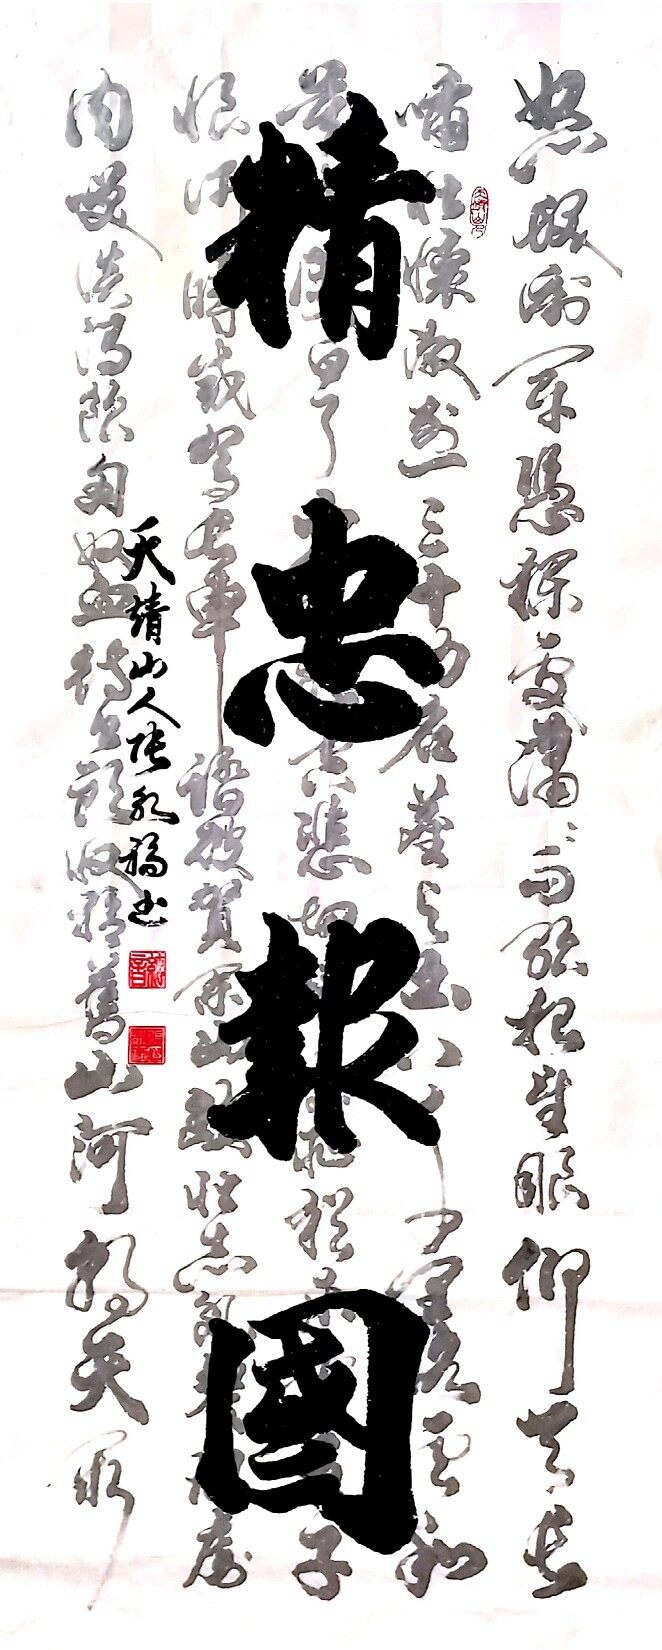 精忠報國
怒髮衝冠憑欄處瀟瀟雨歇抬望眼仰天長
嘯壯懷激烈三十功名塵與土八里路雲和
閒白了空悲切恥猶未子
恨何時滅駕長車踏破賀蘭山缺壯志飢餐虜
肉笑談渴飲匈奴血待從頭收拾舊山河朝天闕
天靖山人張永福書